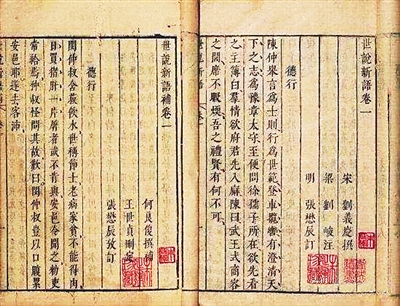 世說新語卷一
宋 劉義慶撰
梁 劉峻注
明 張懋辰訂
德行
陳仲舉言為士則行為世範登車攬轡有澄清天
下之志為豫章太守至便問徐孺子所在欲先看
之主簿白羣情欲府君先入廨陳曰武王式商容
之閭席不暇煖吾之禮賢有何不可
世說新語補卷一
何良俊撰補
王世貞刪定
張懋辰攷訂
德行
閔仲叔含菽飲水世稱節士老病家貧不能得肉
日買猪肝一片屠者或不肯與安邑令聞之勑吏
常給焉仲叔怪問其故歎曰閔仲叔豈以口腹累
安邑耶遂去客沛